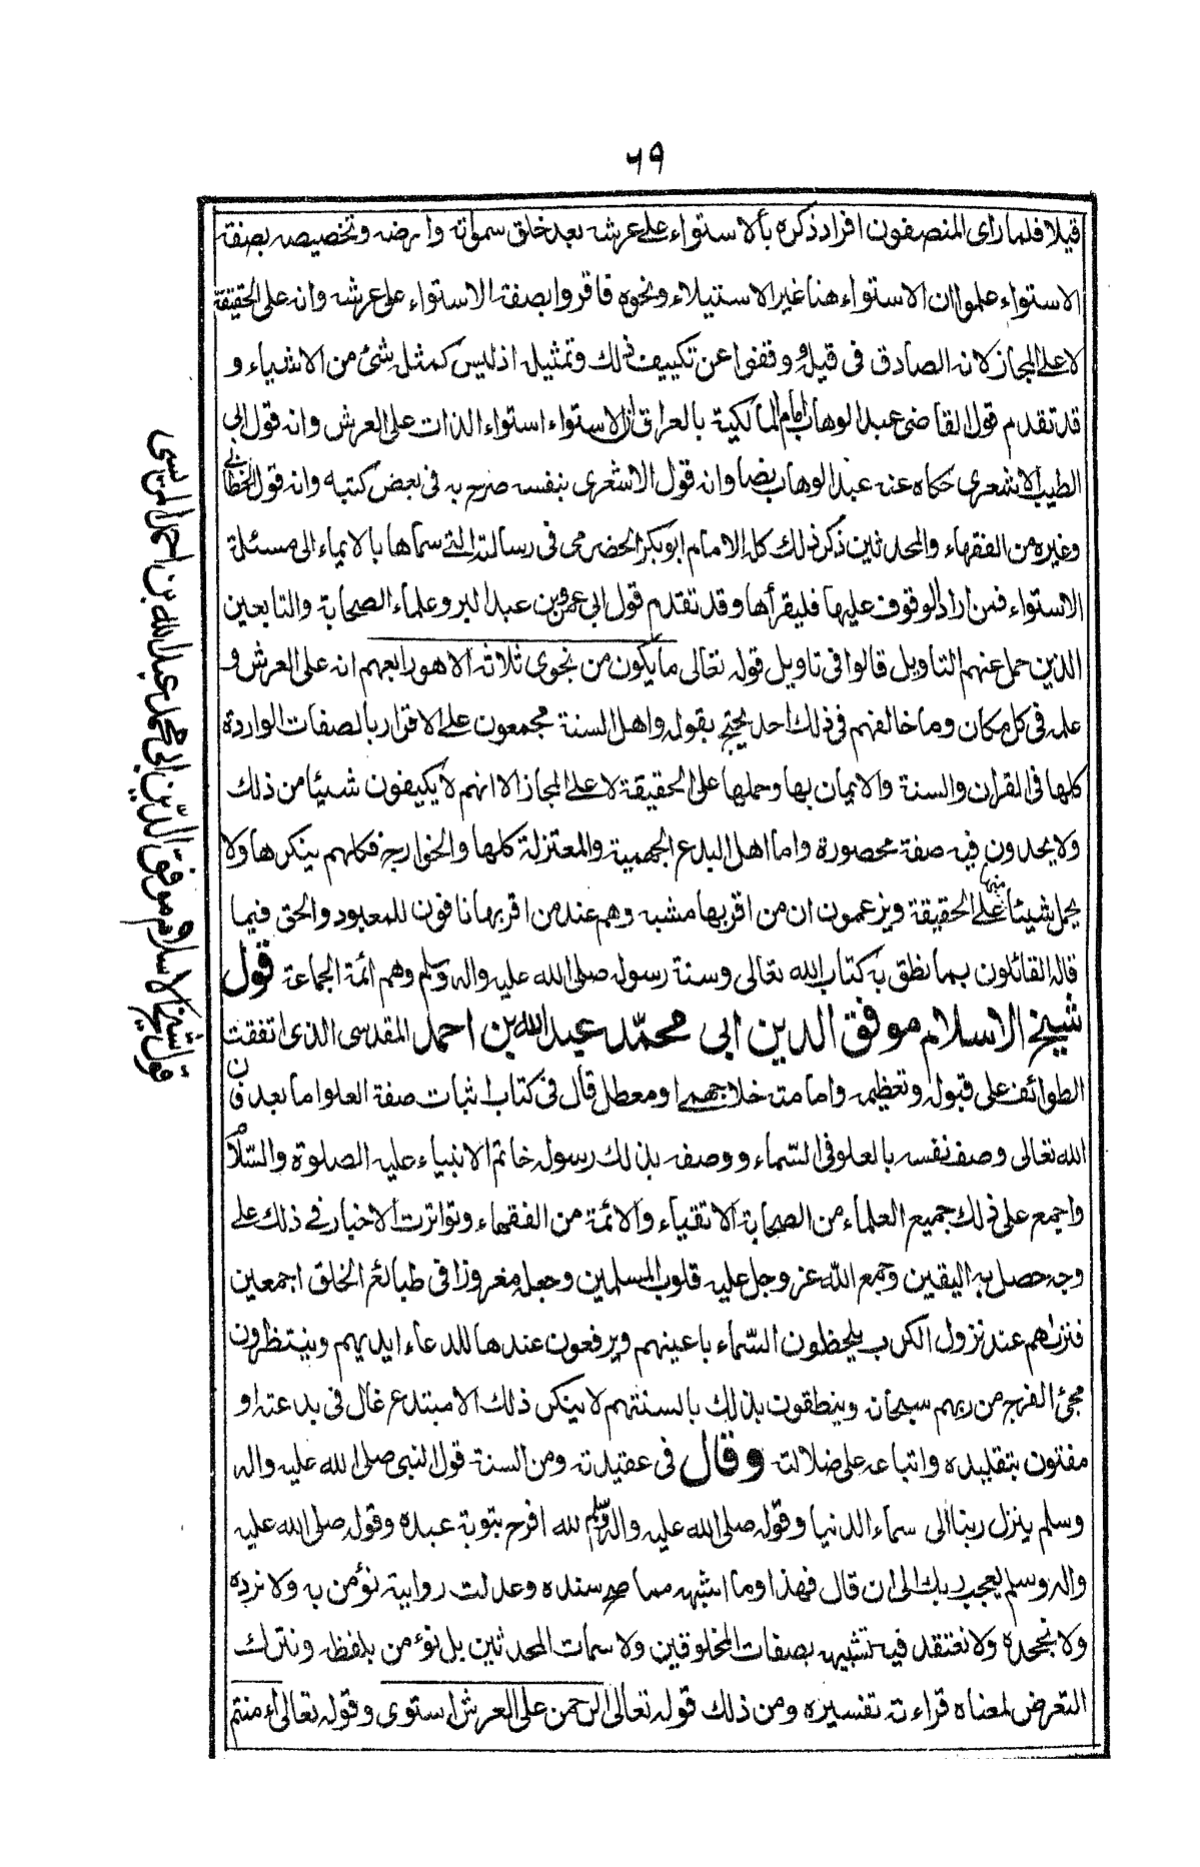 ٦٩
قيلا فلما راى المنصفون افراد ذكره بألاستواء على عرشه بعد خلق سمواته وارضه وتخصيصه بصفة
الاستواء علموا ان الاستواء هنا غير الاستيلاء ونحوه فاقروا بصفة الاستواء على عرشه وانه على الحقيقة
لا على المجاز لانه الصادق فى قيله ووقفوا عن تكييف ذلك وتمثيله اذ ليس كمثله شئ من الاشياء و
قد تقدم قول القاضى عبد الوهاب امام المالكية بالعراق ان الاستواء استواء الذات على العرش وانه قول ابى
الطيب الاشعرى حكاه عنه عبد الوهاب نصا وانه قول الاشعرى بنفسه صرح به فى بعض كتبه وانه قول الخطابى
وغيره من الفقهاء والمحدثين ذكر ذلك كله الامام ابو بكر الحضرمى فى رسالته التى سماها بالايماء الى مسئلة
الاستواء فمن اراد الوقوف عليها فليقرأها وقد تقدم قول ابى عمرو بن عبد البر وعلماء الصحابة والتابعين
الذين حمل عنهم التاويل قالوا فى تاويل قوله تعالى ما يكون من نجوى ثلاثة الا هو رابعهم انه على العرش و
علمه فى كل مكان وما خالفهم فى ذلك احد يحتج بقوله واهل السنة مجمعون على الاقرار بالصفات الواردة
كلها فى القران والسنة والايمان بها وحملها على الحقيقة لا على المجاز الا انهم لا يكيفون شيئا من ذلك
ولا يحدون فيه صفة محصورة واما اهل البدع الجهمية والمعتزلة كلها والخوارج فكلهم ينكرها ولا
يحمل شيئا منها على الحقيقة ويزعمون ان من اقر بها مشبه وهم عند من اقر بها نافون للمعبود والحق فيما
قاله القائلون بما نطق به كتاب الله تعالى وسنة رسوله صلى الله عليه واله وسلم وهم ائمة الجماعة قول
شيخ الاسلام موفق الدين ابى محمد عبد الله بن احمد المقدسى الذى اتفقت
الطوائف على قبوله وتعظيمه وامامته خلا جهما او معطل قال فى كتاب اثبات صفة العلو اما بعد فان
الله تعالى وصف نفسه بالعلو فى السماء ووصفه بذلك رسوله خاتم الانبياء عليه الصلوة والسلام
واجمع على ذلك جميع العلماء من الصحابة الاتقياء والائمة من الفقهاء وتواترت الاخبار فى ذلك على
وجه حصل به اليقين وجمع الله عز وجل عليه قلوب المسلمين وجعله مغروزا فى طبائع الخلق اجمعين
فنزلهم عند نزول الكرب يلحظون السماء باعينهم ويرفعون عندها للدعاء ايديهم وينتظرون
مجئ الفرج من ربهم سبحانه وينطقون بذلك بالسنتهم لا ينكر ذلك الا مبتدع غال فى بدعته او
مفتون بتقليده واتباعه على ضلالته وقال فى عقيدته ومن السنة قول النبى صلى الله عليه واله
وسلم ينزل ربنا الى سماء الدنيا وقوله صلى الله عليه واله وسلم لله افرح بتوبة عبده وقوله صلى الله عليه
واله وسلم يعجب ربك الى ان قال فهذا وما اشبهه مما صح سنده وعدلت روايته نؤمن به ولا نرده
ولا نجحده ولا نعتقد فيه تشبيهه بصفات المخلوقين ولا سمات المحدثين بل نؤمن بلفظه ونترك
التعرض لمعناه قراءته تفسيره ومن ذلك قوله تعالى الرحمن على العرش استوى وقوله تعالى أءمنتم
قول شيخ الاسلام موفق الدين ابى محمد عبد الله بن احمد المقدسى